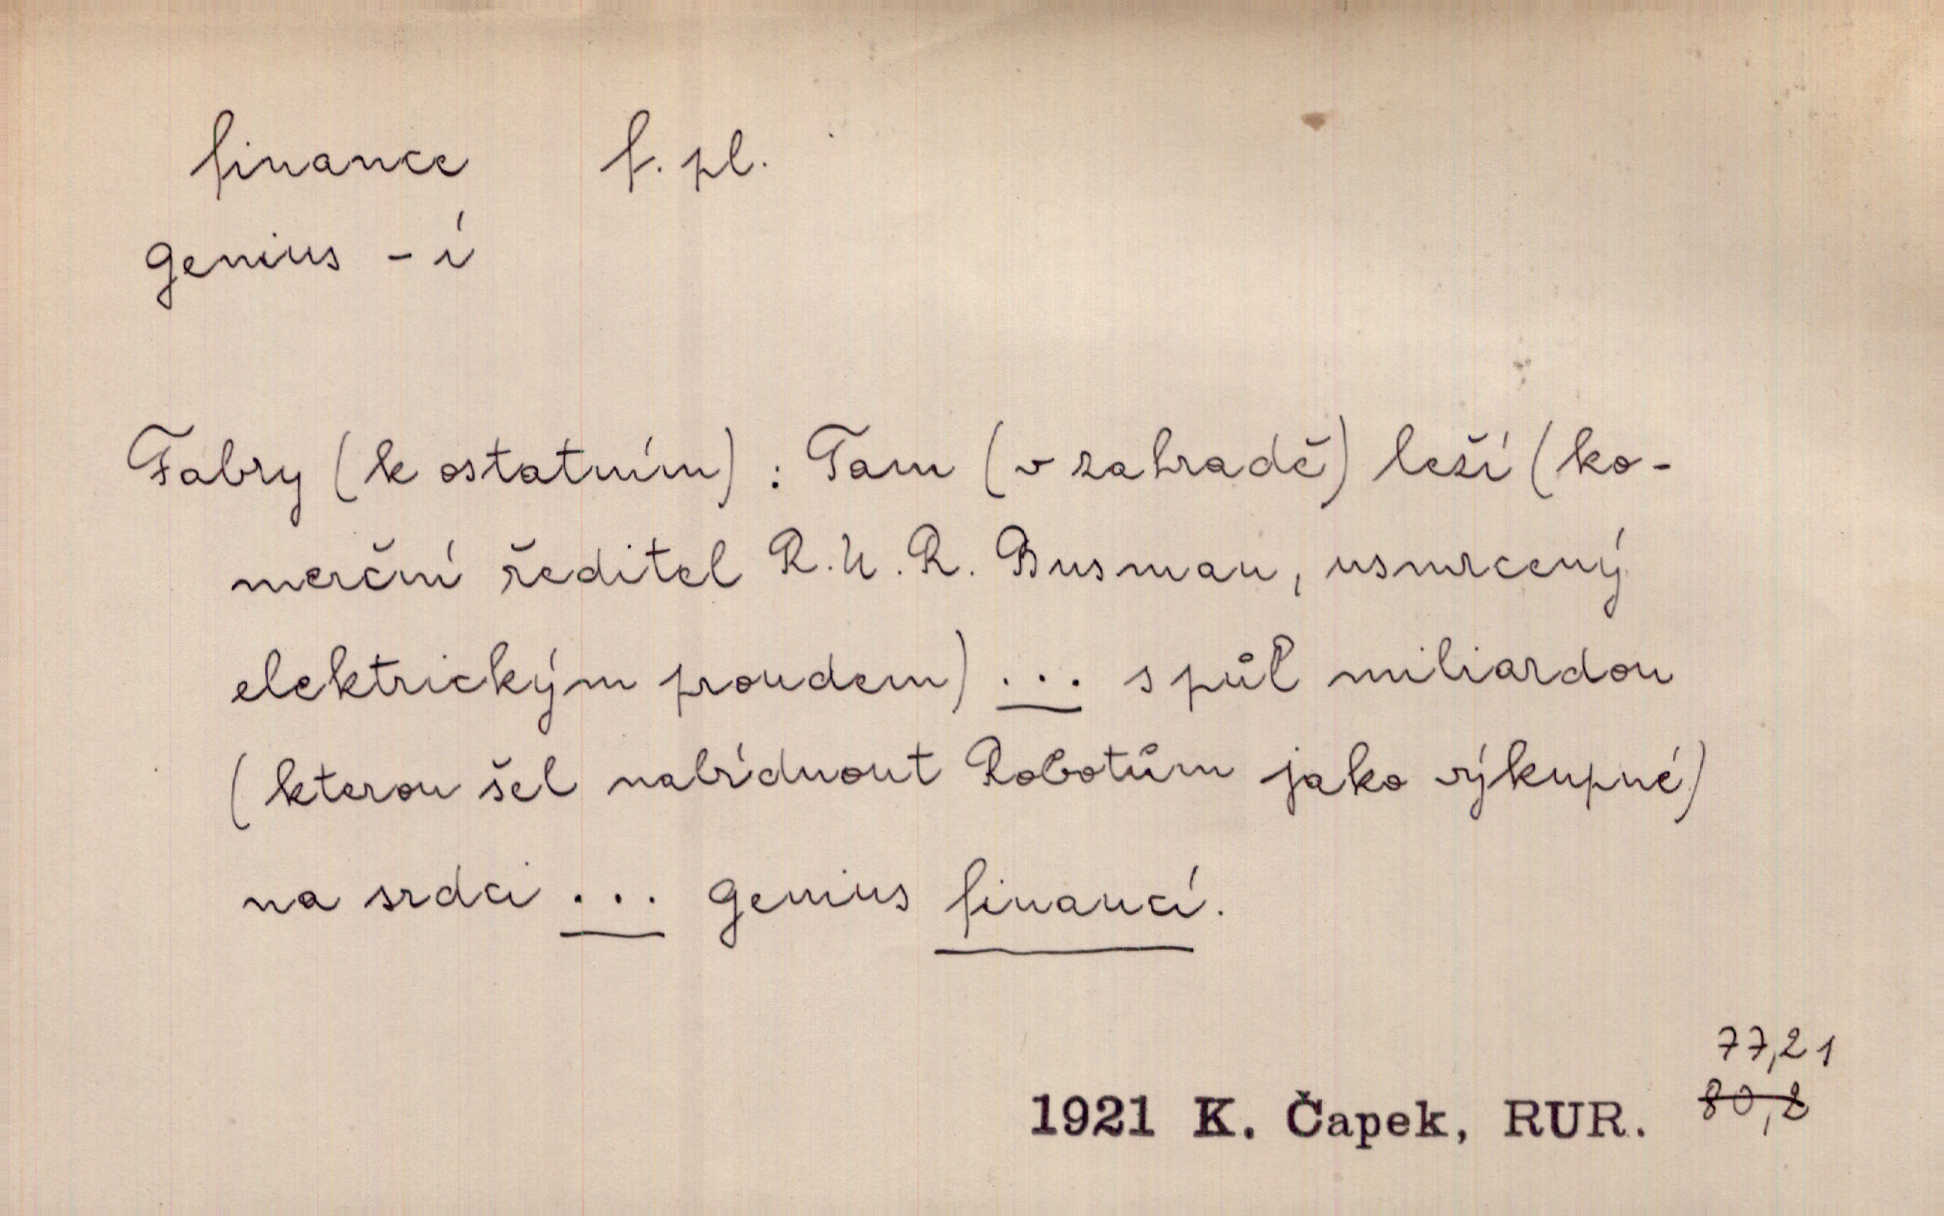 finance f. pl.
genius - í
Fabry (k ostatním) : Tam (v zahradě) leží (ko-
merční ředitel R. U. R. Busman, usmrcený
elektrickým proudem) ... s půl miliardou
(kterou šel nabídnout Robotům jako výkupné)
na srdci ... genius financí.
77,21
1921 K. Čapek, RUR. 80,2